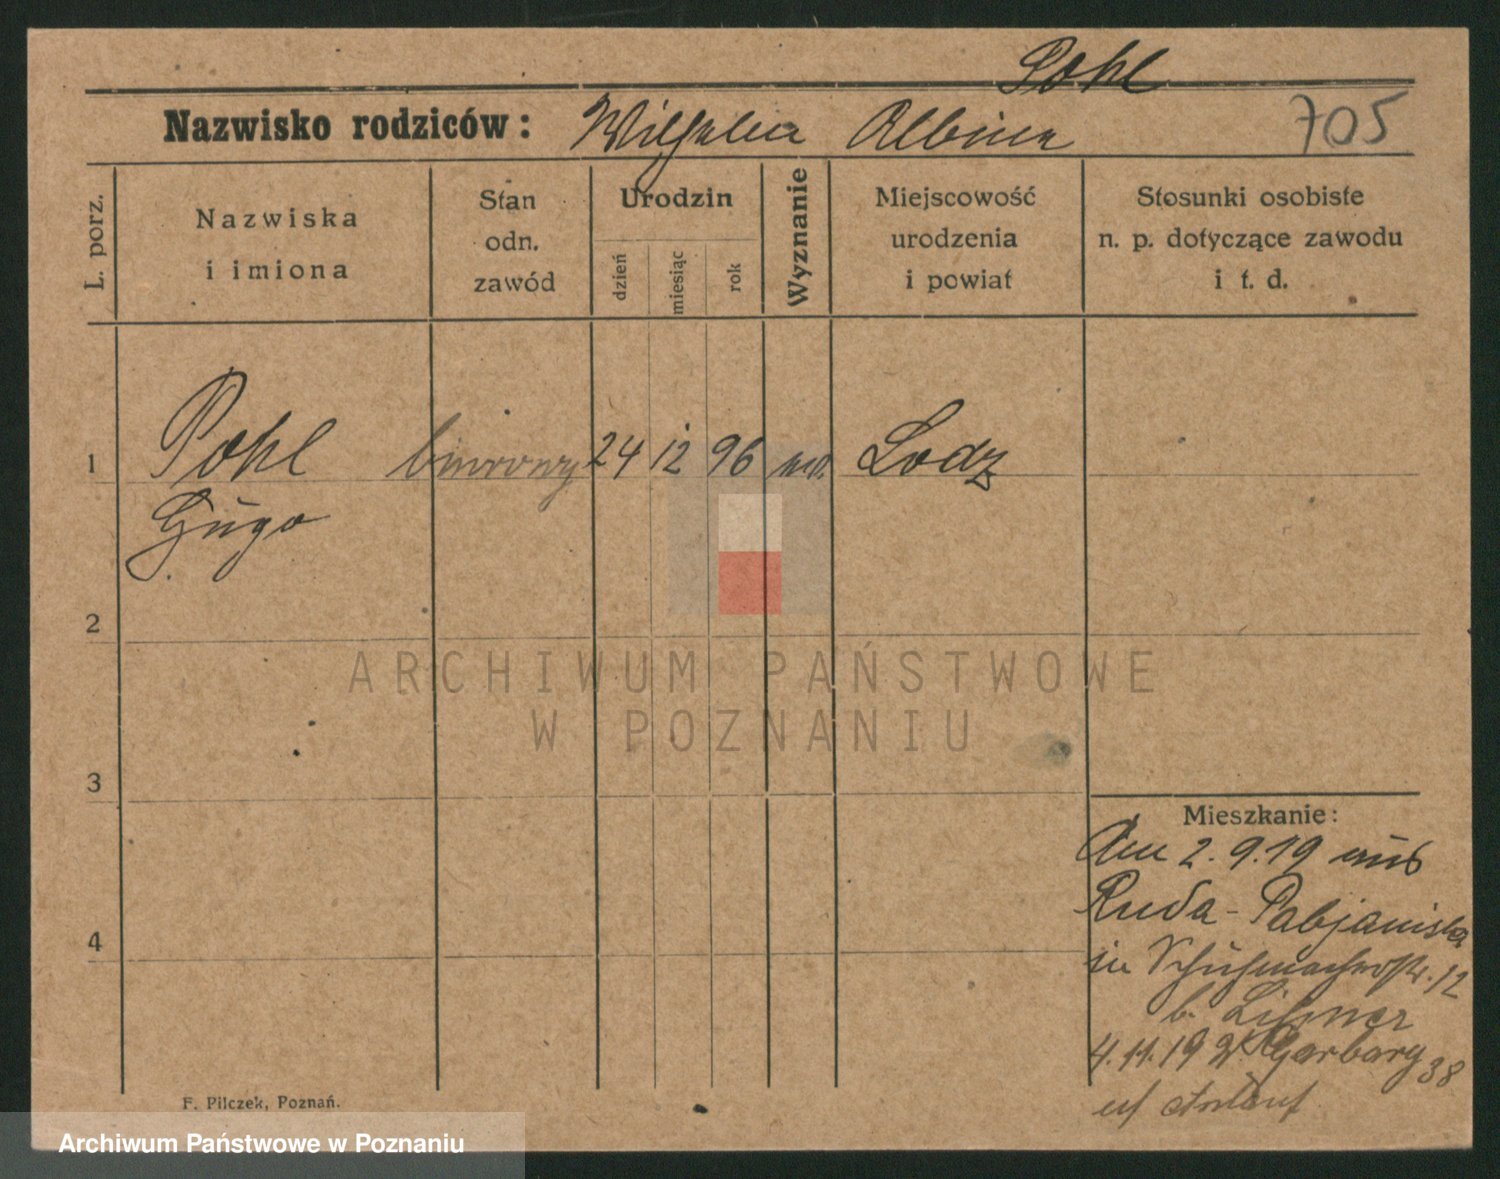 Pohl
Nazwisko rodziców: Wilhelm Albine 705
L. porz.
Nazwiska
i imiona
Stan
odn.
zawód
Urodzin
dzień
miesiąc
rok
Wyznanie
Miejscowość
urodzenia
i powiat
Stosunki osobiste
n. p. dotyczące zawodu
i t. d.
1 Pohl biurowy 24 12 96 Lodz
Hugo
2
3
4
ARCHIWUM PAŃSTWOWE
W POZNANIU
Mieszkanie:
Am 2.9.19 aus
Ruda-Pabjaniska
in Schuhmacherstr. 12
b.
4.11.19 Garbary 38
F. Pilczek, Poznań.
Archiwum Państwowe w Poznaniu